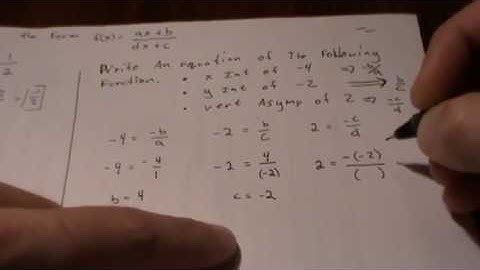 the Form f(x) = ax + b / dx + c
Write An equation of The Following
Function.
• x Int of -4 ⇒ -b/a
• y Int of -2 ⇒ b/c
• vert Asymp of 2 ⇒ -c/d
-4 = -b/a
-2 = b/c
2 = -c/d
-4 = -4/1
-2 = 4/(-2)
2 = -(-2)/( )
b = 4
c = -2
1/2